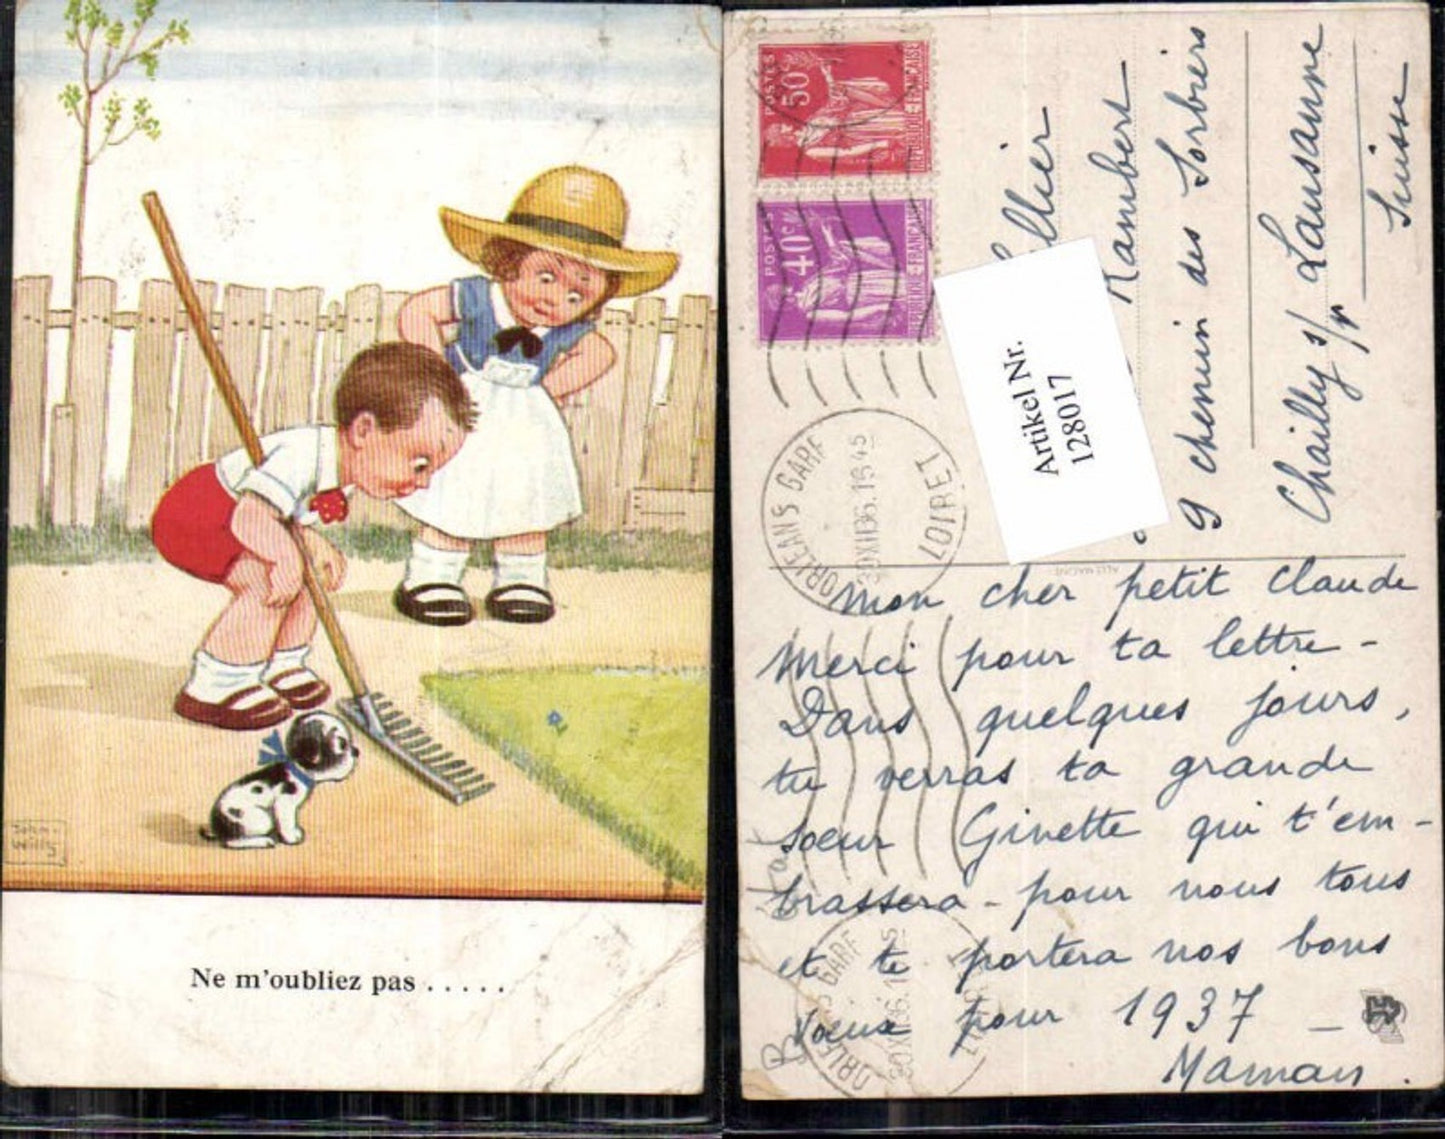 John-
Willy
Ne m'oubliez pas . . . . .
POSTES
50c
REPUBLIQUE-FRANÇAISE
POSTES
40c
REPUBLIQUE-FRANÇAISE
ORLEANS GARE
30XII36.1945
LOIRET
Rambert
9 chemin des Sorbiers
Chailly s/ Lausanne
Suisse
Artikel Nr.
128017
ALLEMAGNE
Mon cher petit Claude
Merci pour ta lettre -
Dans quelques jours,
tu verras ta grande
soeur Ginette qui t'em-
brassera - pour nous tous
et te portera nos bons
voeux pour 1937 -
Maman.
ORLEANS GARE